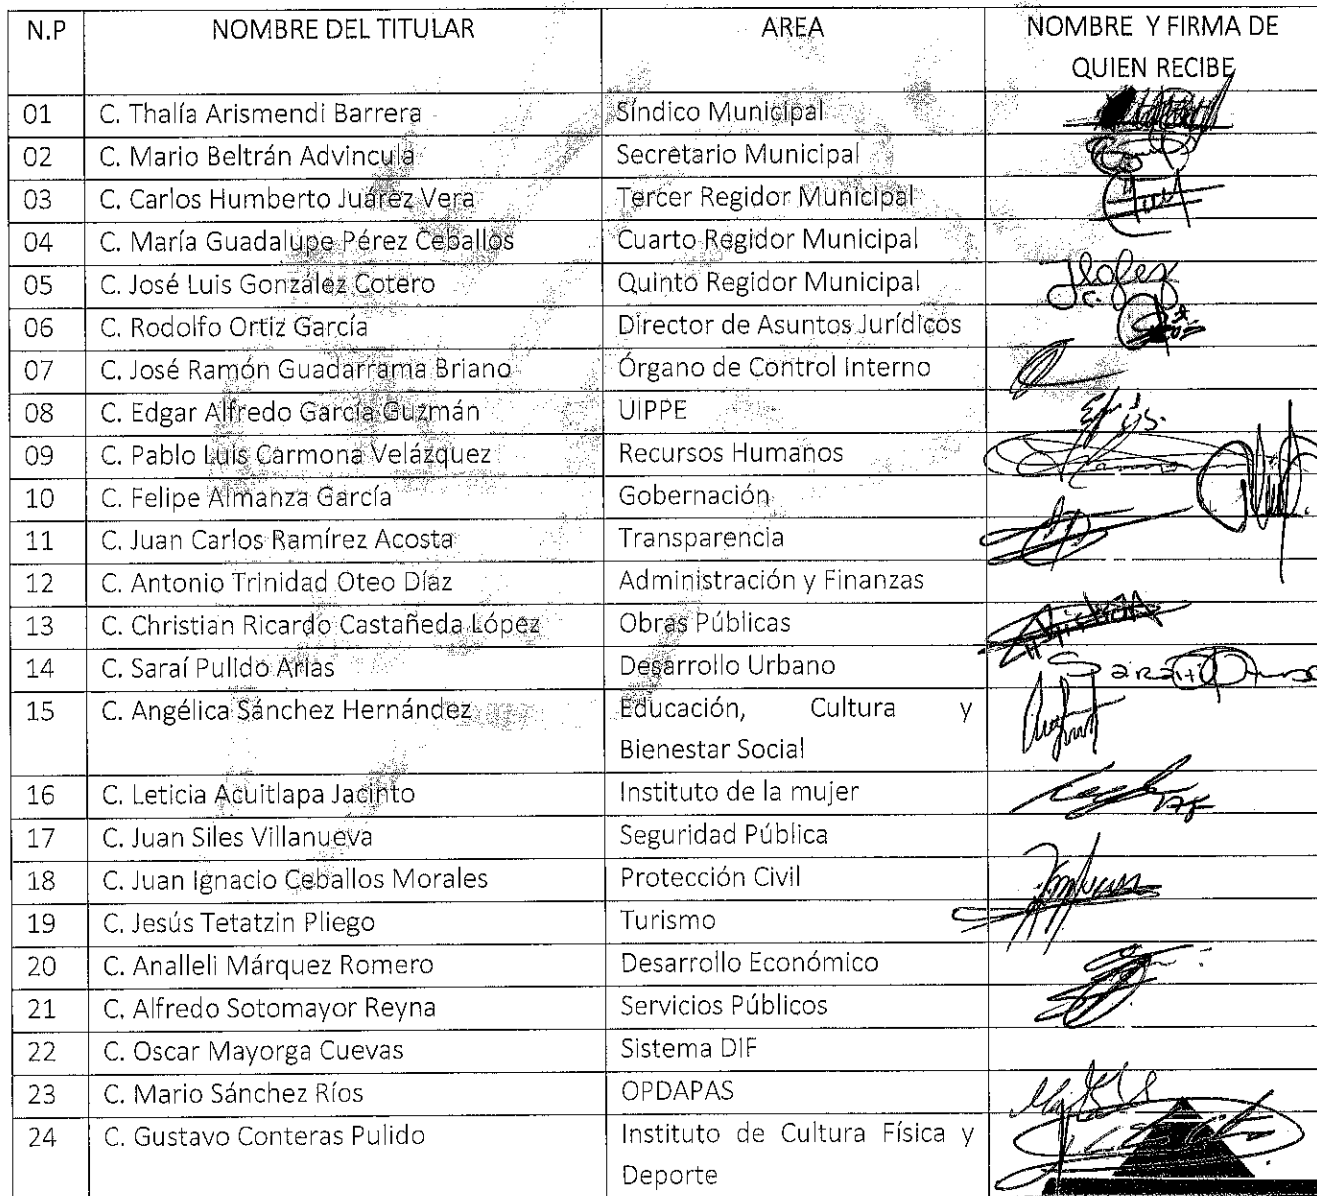 N.P NOMBRE DEL TITULAR AREA NOMBRE Y FIRMA DE
QUIEN RECIBE
01 C. Thalía Arismendi Barrera Síndico Municipal
02 C. Mario Beltrán Advincula Secretario Municipal
03 C. Carlos Humberto Juárez Vera Tercer Regidor Municipal
04 C. María Guadalupe Pérez Ceballos Cuarto Regidor Municipal
05 C. José Luis González Cotero Quinto Regidor Municipal
06 C. Rodolfo Ortiz García Director de Asuntos Jurídicos
07 C. José Ramón Guadarrama Briano Órgano de Control Interno
08 C. Edgar Alfredo García Guzmán UIPPE
09 C. Pablo Luis Carmona Velázquez Recursos Humanos
10 C. Felipe Almanza García Gobernación
11 C. Juan Carlos Ramírez Acosta Transparencia
12 C. Antonio Trinidad Oteo Díaz Administración y Finanzas
13 C. Christian Ricardo Castañeda López Obras Públicas
14 C. Saraí Pulido Arias Desarrollo Urbano
15 C. Angélica Sánchez Hernández Educación, Cultura y
Bienestar Social
16 C. Leticia Acuitlapa Jacinto Instituto de la mujer
17 C. Juan Siles Villanueva Seguridad Pública
18 C. Juan Ignacio Ceballos Morales Protección Civil
19 C. Jesús Tetatzin Pliego Turismo
20 C. Analleli Márquez Romero Desarrollo Económico
21 C. Alfredo Sotomayor Reyna Servicios Públicos
22 C. Oscar Mayorga Cuevas Sistema DIF
23 C. Mario Sánchez Ríos OPDAPAS
24 C. Gustavo Conteras Pulido Instituto de Cultura Física y
Deporte